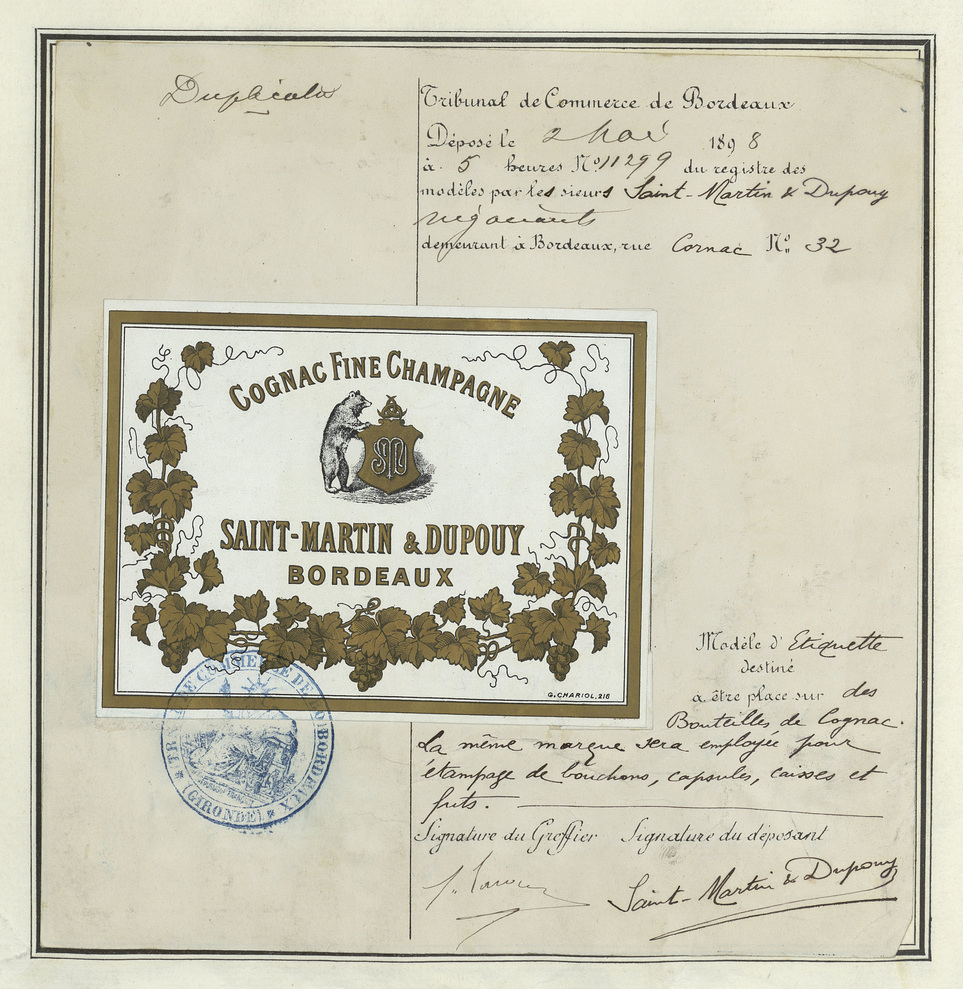 Duplicata
Tribunal de Commerce de Bordeaux
Déposé le 2 Mai 1898
à 5 heures No. 11299 du registre des
modèles par les sieurs Saint-Martin & Dupouy
négociants
demeurant à Bordeaux, rue Cornac No. 32
COGNAC FINE CHAMPAGNE
SAINT-MARTIN & DUPOUY
BORDEAUX
G. CHARIOL, 216
Modèle d'Etiquette
destiné
a être place sur des
Bouteilles de Cognac.
La même marque sera employée pour
étampage de bouchons, capsules, caisses et
futs.
TRIBUNAL DE COMMERCE DE BORDEAUX
(GIRONDE)
Signature du Greffier Signature du déposant
Saint-Martin & Dupouy